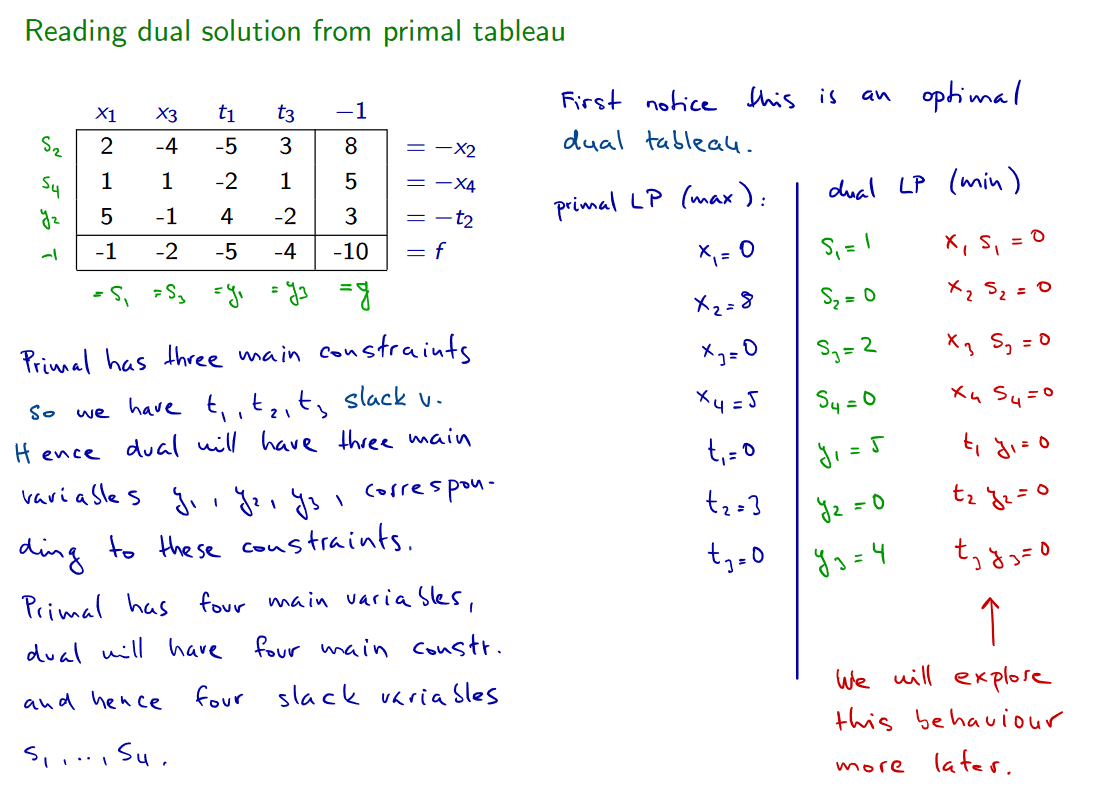 Reading dual solution from primal tableau
x1 x3 t1 t3 −1
s2 2 -4 -5 3 8 = −x2
s4 1 1 -2 1 5 = −x4
y2 5 -1 4 -2 3 = −t2
-1 -1 -2 -5 -4 -10 = f
=s1 =s3 =y1 =y3 =g
Primal has three main constraints
so we have t1, t2, t3 slack v.
Hence dual will have three main
variables y1, y2, y3, correspon-
ding to these constraints.
Primal has four main variables,
dual will have four main constr.
and hence four slack variables
s1, ..., s4.
First notice this is an optimal
dual tableau.
primal LP (max): dual LP (min)
x1=0 s1=1 x1 s1=0
x2=8 s2=0 x2 s2=0
x3=0 s3=2 x3 s3=0
x4=5 s4=0 x4 s4=0
t1=0 y1=5 t1 y1=0
t2=3 y2=0 t2 y2=0
t3=0 y3=4 t3 y3=0
↑
We will explore
this behaviour
more later.